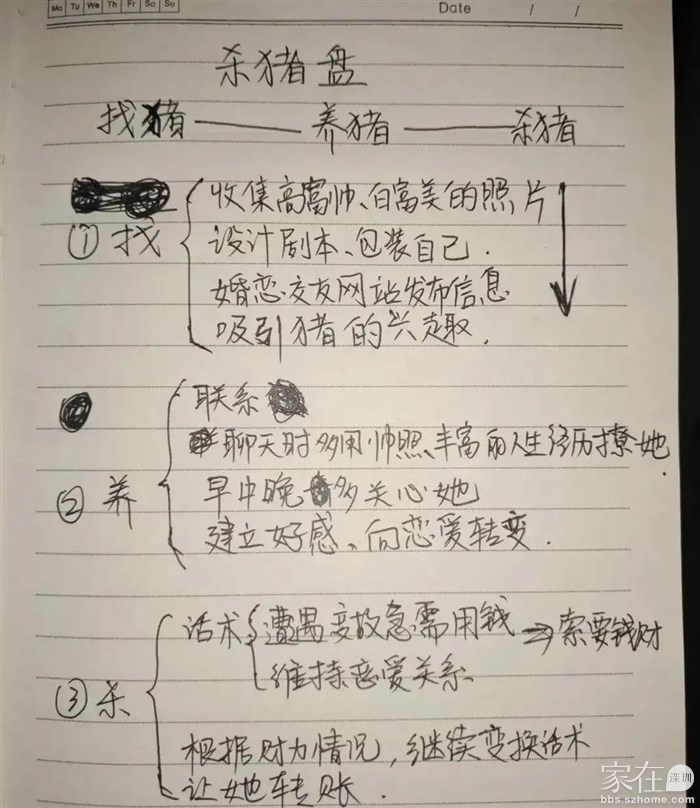 Mo Tu We Th Fr Sa Su
Date / /
杀猪盘
找猪——养猪——杀猪
①找
收集高富帅、白富美的照片
设计剧本、包装自己.
婚恋交友网站发布信息
吸引猪的兴趣.
②养
联系
聊天时多用帅照、丰富的人生经历撩她.
早中晚多关心她
建立好感、向恋爱转变.
③杀
话术
遭遇变故急需用钱⇒索要钱财
维持恋爱关系
根据财力情况，继续变换话术
让她转账.
家在深圳
bbs.szhome.com